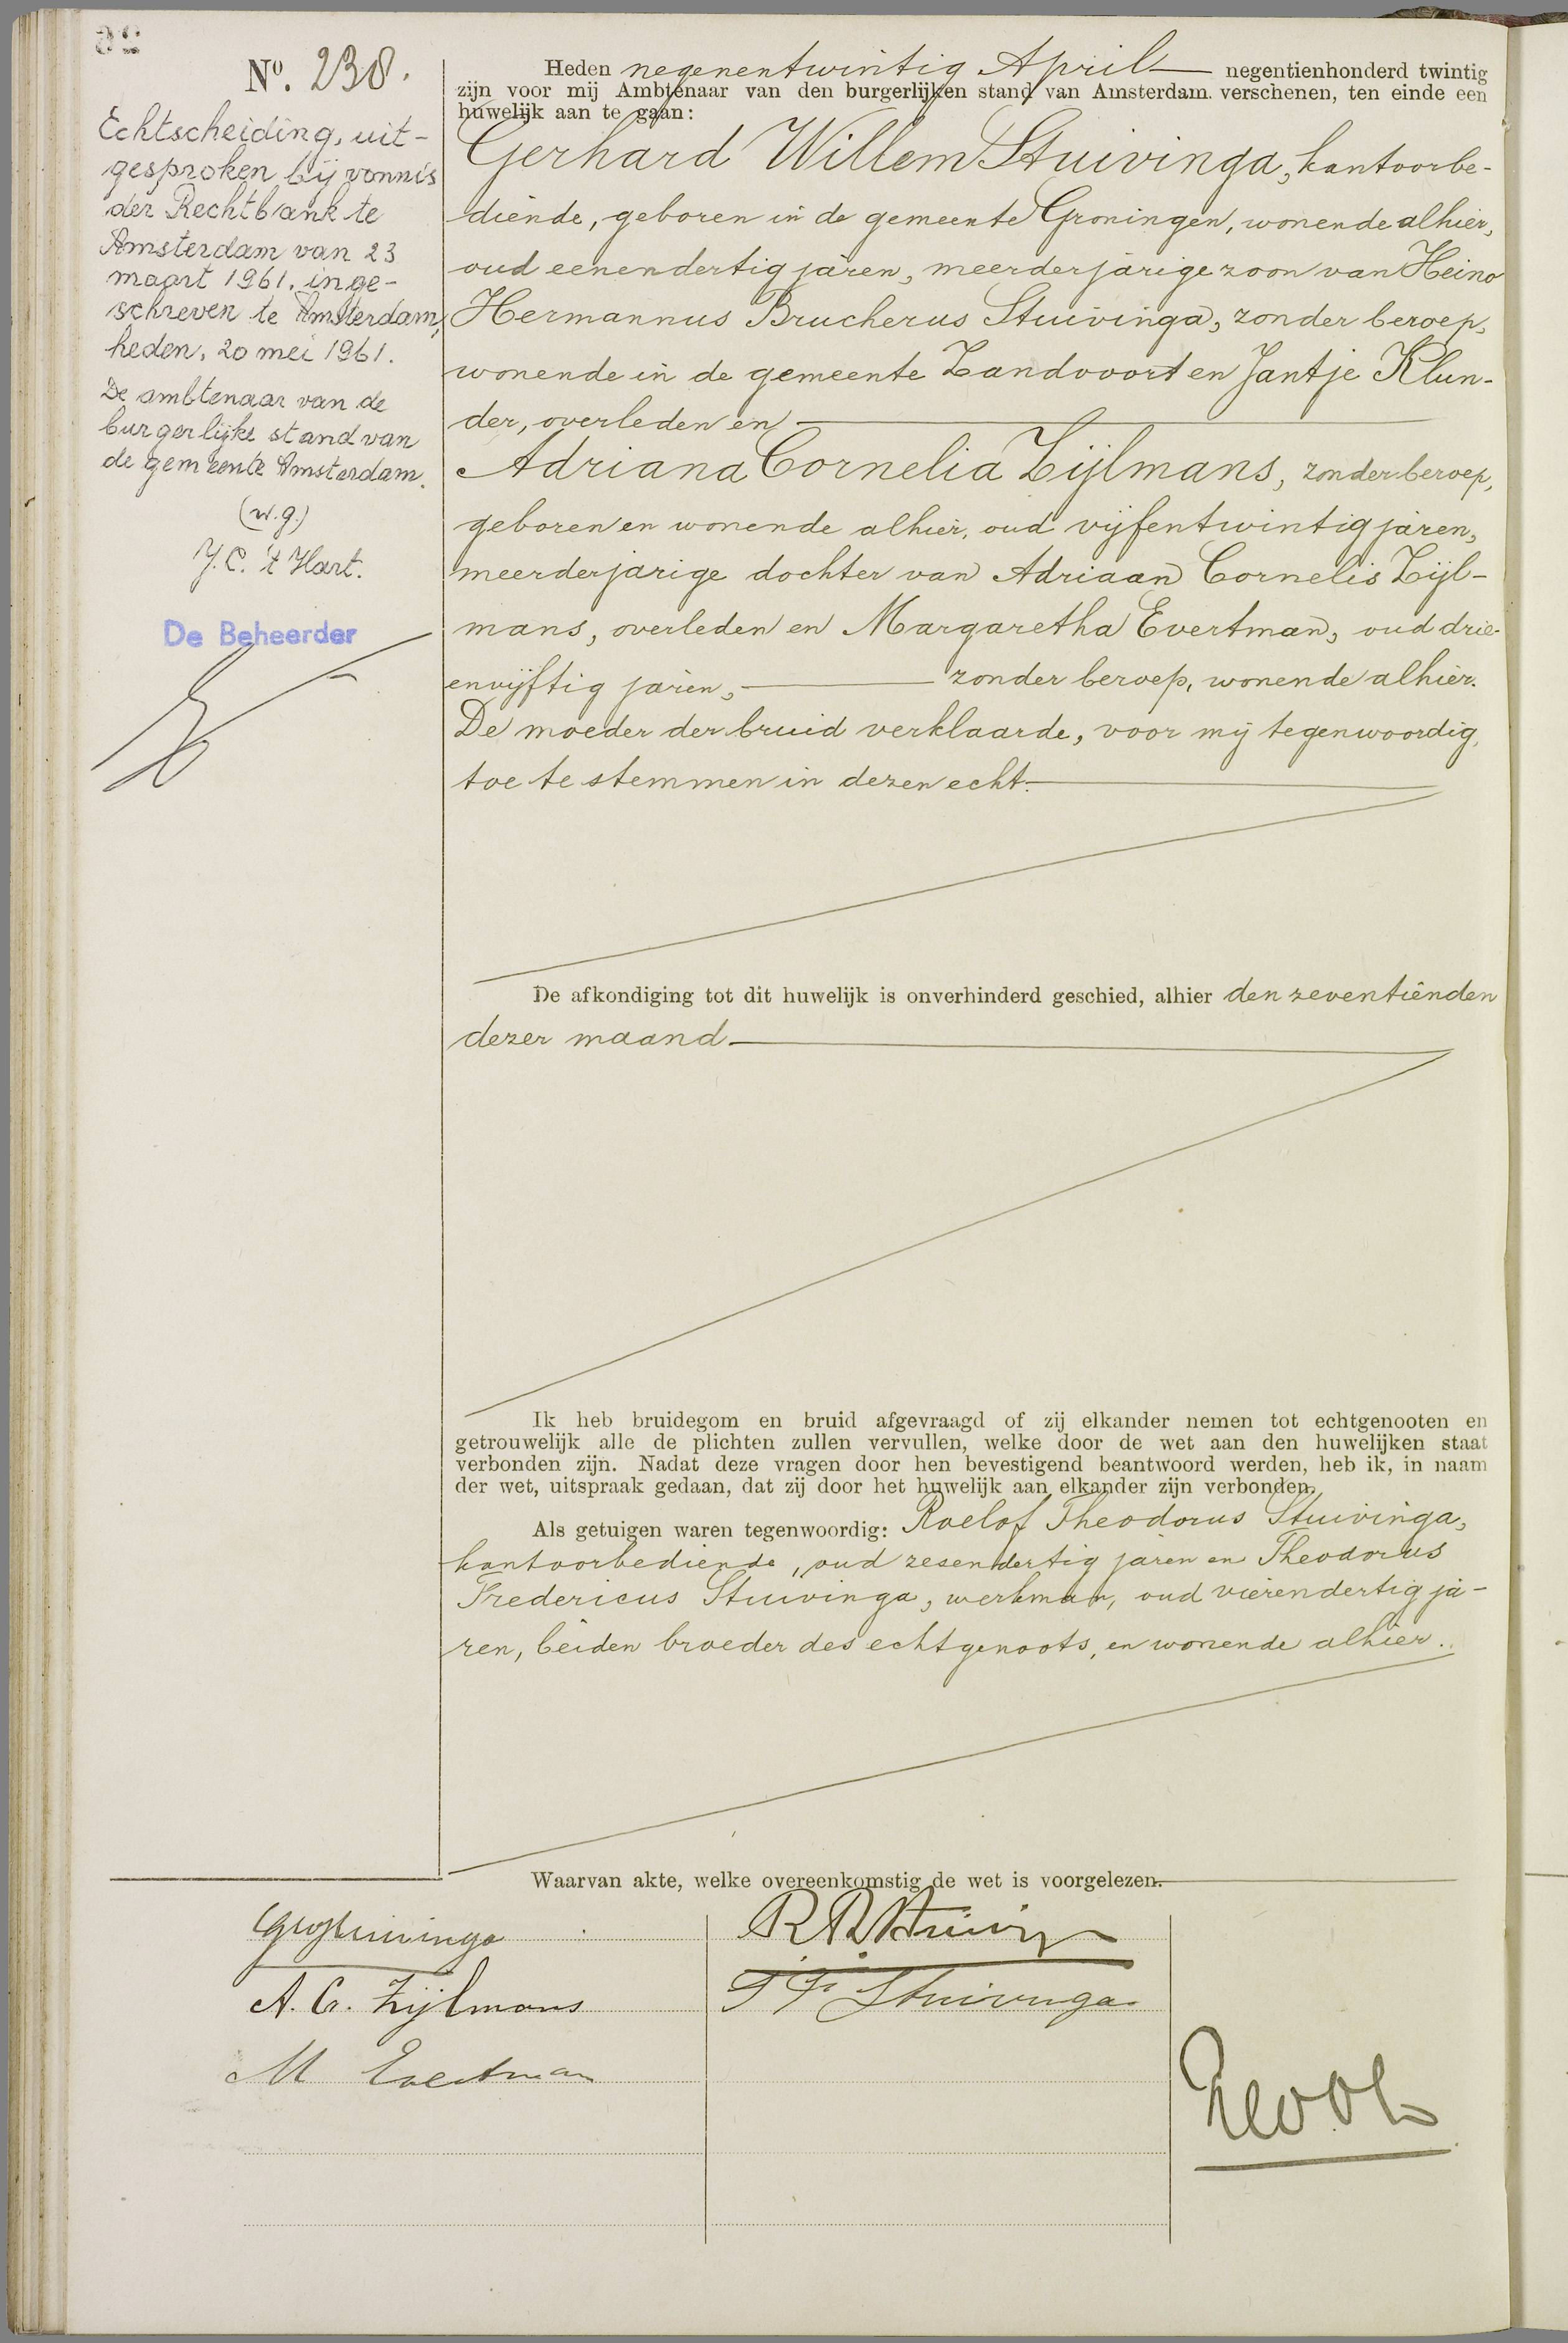 No. 238.
Echtscheiding, uit-
gesproken bij vonnis
der Rechtbank te
Amsterdam van 23
maart 1961, inge-
schreven te Amsterdam,
heden, 20 mei 1961.
De ambtenaar van de
burgerlijke stand van
de gemeente Amsterdam.
(w.g.)
J.C. 't Hart.
De Beheerder
Heden negenentwintig April negentienhonderd twintig
zijn voor mij Ambtenaar van den burgerlijken stand van Amsterdam. verschenen, ten einde een
huwelijk aan te gaan:
Gerhard Willem Stuivinga, kantoorbe-
diende, geboren in de gemeente Groningen, wonende alhier,
oud eenendertig jaren, meerderjarige zoon van Heino
Hermannus Brucherus Stuivinga, zonder beroep,
wonende in de gemeente Zandvoort en Jantje Klun-
der, overleden en
Adriana Cornelia Zijlmans, zonder beroep,
geboren en wonende alhier, oud vijfentwintig jaren,
meerderjarige dochter van Adriaan Cornelis Zijl-
mans, overleden en Margaretha Evertman, oud drie-
envijftig jaren, zonder beroep, wonende alhier.
De moeder der bruid verklaarde, voor mij tegenwoordig,
toe te stemmen in dezen echt.
De afkondiging tot dit huwelijk is onverhinderd geschied, alhier den zeventienden
dezer maand
Ik heb bruidegom en bruid afgevraagd of zij elkander nemen tot echtgenooten en
getrouwelijk alle de plichten zullen vervullen, welke door de wet aan den huwelijken staat
verbonden zijn. Nadat deze vragen door hen bevestigend beantwoord werden, heb ik, in naam
der wet, uitspraak gedaan, dat zij door het huwelijk aan elkander zijn verbonden.
Als getuigen waren tegenwoordig: Roelof Theodorus Stuivinga,
kantoorbediende, oud zesendertig jaren en Theodorus
Fredericus Stuivinga, werkman, oud vierendertig ja-
ren, beiden broeder des echtgenoots, en wonende alhier.
Waarvan akte, welke overeenkomstig de wet is voorgelezen.
GWStuivinga
A. C. Zijlmans
T F Stuivinga
M Evertman